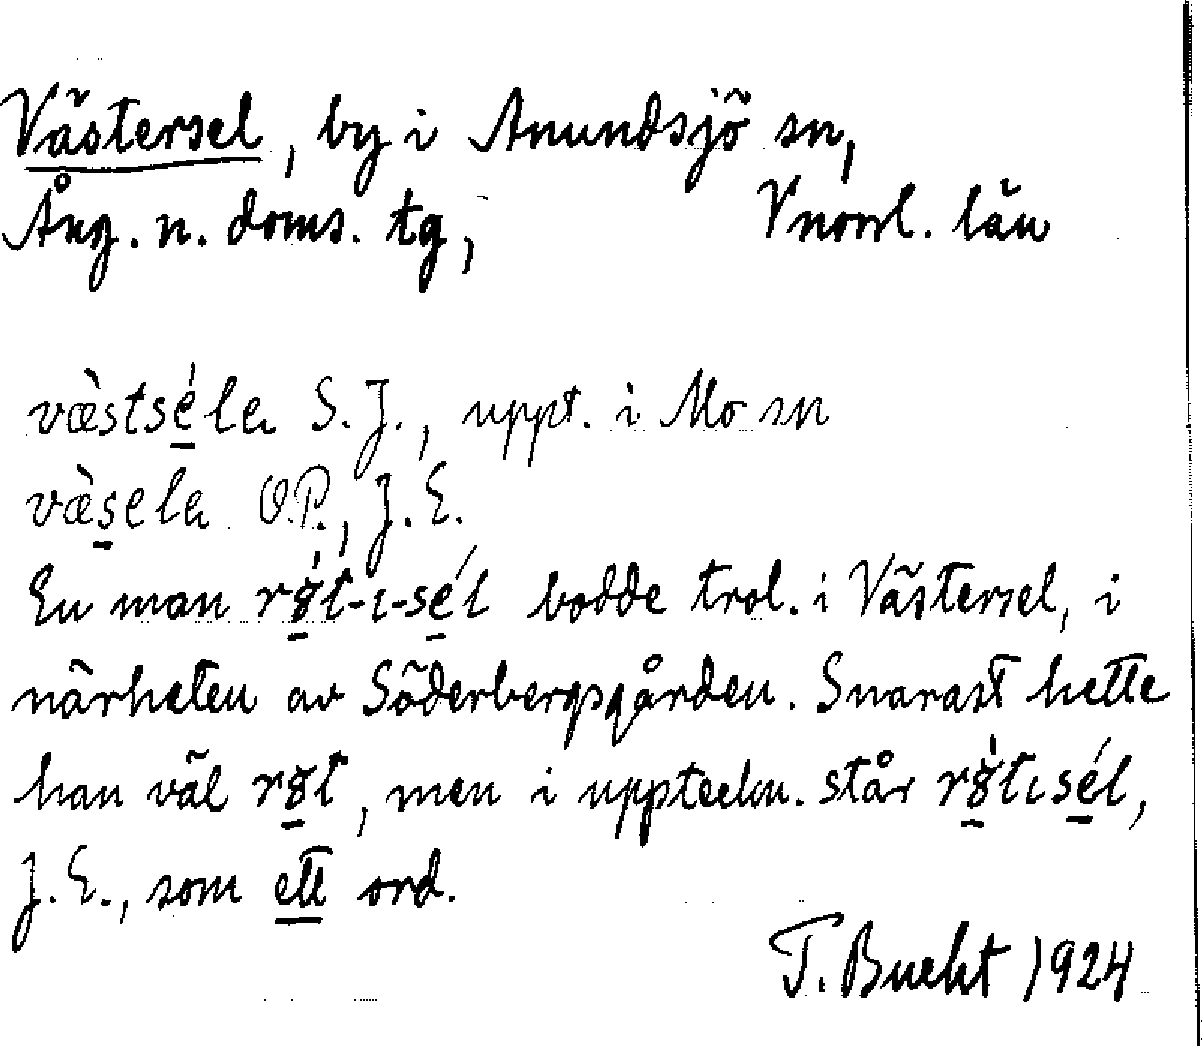 Västersel, by i Anundsjö sn,
Ång. n. doms. tg, Vnorrl. län
væ̀stséla S.J., uppt. i Mo sn
væ̀sela O.P., J.E.
En man rø̀t-ı-sél bodde trol. i Västersel, i
närheten av Söderbergsgården. Snarast hette
han väl røt, men i uppteckn. står rø̀tısél,
J.E., som ett ord.
T. Bucht 1924